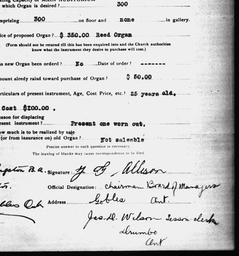 which Organ is desired? 300
prising 300 on floor and none in gallery.
ice of proposed Organ? $ 350.00 Reed Organ
(Form should not be returned till this has been enquired into and the Church authorities
know what the instrument they desire to purchase will cost.)
a new Organ been ordered? No Date of order? -------
mount already raised toward purchase of Organ? $ 50.00
rticulars of present instrument, Age, Cost Price, etc.? 25 years old,
Cost $200.00.
eason for displacing
present instrument? Present one worn out.
w much is to be realized by sale
(or from insurance on) old Organ? Not saleable
Precise answer to each question is necessary.
The leaving of blanks may cause correspondence to fail.
gston B.A. Allison
Official Designation: chairman Board of Managers
Address Gobles
Ont.
Jas. D. Wilson Session clerk
Drumbo
Ont